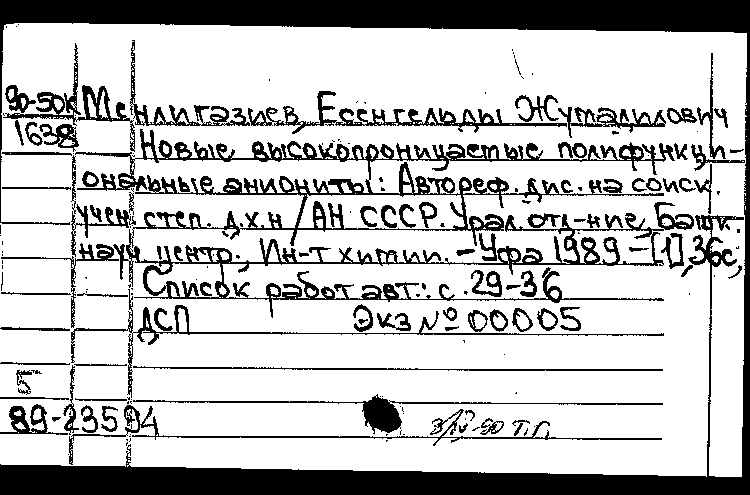 90-50к Менлигазиев, Есенгельды Жумадилович
1638
Новые высокопроницаемые полифункци-
ональные аниониты: Автореф. дис. на соиск.
учен. степ. д.х.н / АН СССР. Урал. отд-ние, Башк.
науч. центр., Ин-т химии. - Уфа 1989. - [1], 36с,
Список работ авт.: с. 29-36
ДСП Экз № 00005
5
89-23594
3/IV-90 Т.П.